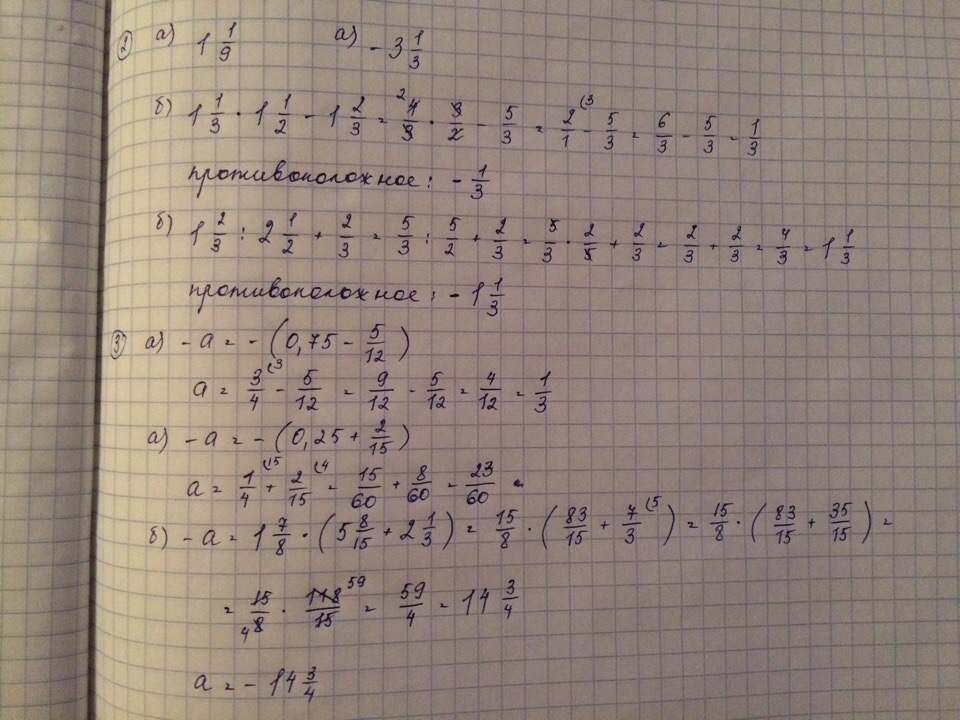 ② а) 1 1/9 а) - 3 1/3
б) 1 1/3 · 1 1/2 - 1 2/3 = 4/3 ² · 3/2 - 5/3 = 2/1 (3 - 5/3 = 6/3 - 5/3 = 1/3
противоположное: - 1/3
б) 1 2/3 : 2 1/2 + 2/3 = 5/3 : 5/2 + 2/3 = 5/3 · 2/5 + 2/3 = 2/3 + 2/3 = 4/3 = 1 1/3
противоположное: - 1 1/3
③ а) - а = - (0,75 - 5/12)
а = 3/4 (3 - 5/12 = 9/12 - 5/12 = 4/12 = 1/3
а) - а = - (0,25 + 2/15)
а = 1/4 (15 + 2/15 (4 = 15/60 + 8/60 = 23/60 .
б) - а = 1 7/8 · (5 8/15 + 2 1/3) = 15/8 · (83/15 + 7/3 (5) = 15/8 · (83/15 + 35/15) =
= 15/8 4 · 118/15 59 = 59/4 = 14 3/4
а = - 14 3/4